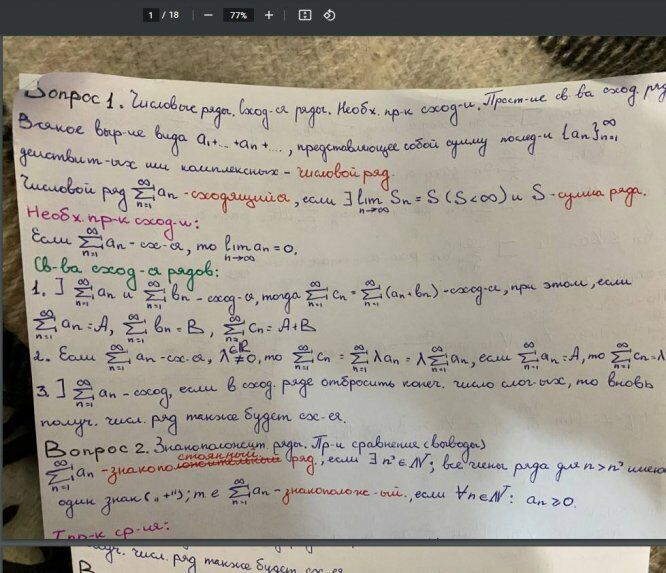 1 / 18 − 77% +
Вопрос 1. Числовые ряды. Сход-ся ряды. Необх. пр-к сход-и. Прост-ие св-ва сход. ряд
Всякое выр-ие вида a₁+...+aₙ+..., представляющее собой сумму послед-и {aₙ}ₙ₌₁^∞
действит-ых или комплексных - числовой ряд.
Числовой ряд ∑ₙ₌₁^∞ aₙ - сходящийся, если ∃ lim_{n→∞} Sₙ = S (S<∞) и S - сумма ряда.
Необх. пр-к сход-и:
Если ∑ₙ₌₁^∞ aₙ - сх-ся, то lim_{n→∞} aₙ = 0.
Св-ва сход-ся рядов:
1. ] ∑ₙ₌₁^∞ aₙ и ∑ₙ₌₁^∞ bₙ - сход-ся, тогда ∑ₙ₌₁^∞ cₙ = ∑ₙ₌₁^∞ (aₙ+bₙ) - сход-ся, при этом, если
∑ₙ₌₁^∞ aₙ = A, ∑ₙ₌₁^∞ bₙ = B, ∑ₙ₌₁^∞ cₙ = A+B
2. Если ∑ₙ₌₁^∞ aₙ - сх-ся, λ∈ℝ ≠0, то ∑ₙ₌₁^∞ cₙ = ∑ₙ₌₁^∞ λaₙ = λ∑ₙ₌₁^∞ aₙ, если ∑ₙ₌₁^∞ aₙ = A, то ∑ₙ₌₁^∞ cₙ = λ
3. ] ∑ₙ₌₁^∞ aₙ - сход, если в сход. ряде отбросить конеч. число слаг-ых, то вновь
получ. числ. ряд также будет сх-ся.
Вопрос 2. Знакоположит. ряды. Пр-и сравнение (выводы)
стоянный
∑ₙ₌₁^∞ aₙ - знакоположительный ряд, если ∃ n°∈ℕ; все члены ряда для n>n° имею
один знак („+"); т.е ∑ₙ₌₁^∞ aₙ - знакополож-ый, если ∀n∈ℕ: aₙ ≥ 0.
I пр-к ср-ия:
получ. числ. ряд также будет сх-ся